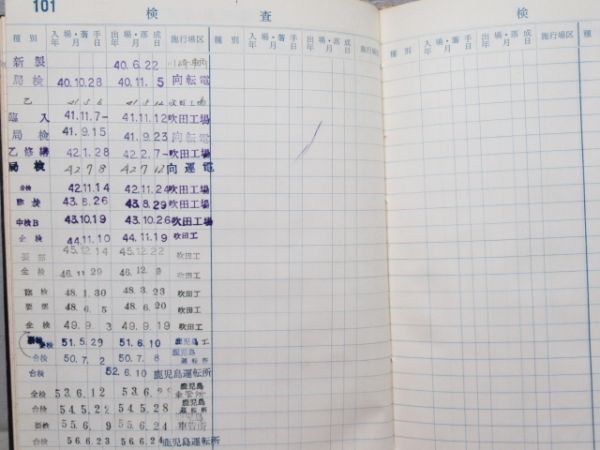 101
検 査
検
種 別 入場・着手 年月日 出場・落成 年月日 施行場区 種 別 入場・着手 年月日 出場・落成 年月日 施行場区
新製 40.6.22
局検 40.10.28 40.11.5 向転電
乙
臨入 41.11.7 41.11.12 吹田工場
局検 41.9.15 41.9.23 向転電
乙修繕 42.1.28 42.2.7 吹田工場
局検 42 7 8 42 7 12 向運電
全検 42.11.14 42.11.24 吹田工場
臨検 43.8.26 43.8.29 吹田工場
中検B 43.10.19 43.10.26 吹田工場
全検 44.11.10 44.11.19 吹田工
45.12.14 45.12.22
全検 46.11.29 46.12.9 吹田工
臨検 48.1.30 48.3.23 吹田工
要部 48.6.5 48.6.20
全検 49.9.3 49.9.19 吹田工
全検 51.5.29 51.6.10 鹿児島工
台検 50.7.2 50.7.8 鹿児島運転所
台検 52.6.10 鹿児島運転所
全検 53.6.12 鹿児島
台検 54.5.22 54.5.28 鹿児島
要部 55.6.9 55.6.24
台検 56.6.23 56.6.24 鹿児島運転所